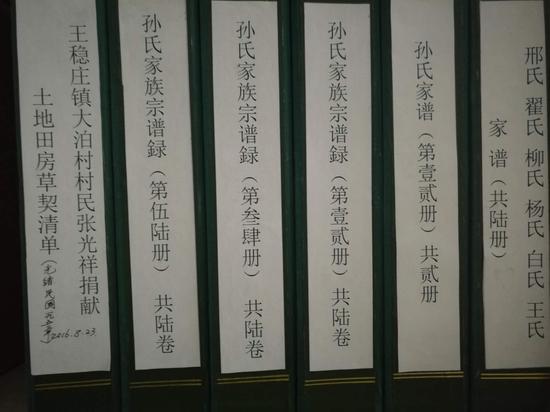 王稳庄镇大泊村村民张光祥捐献
土地田房草契清单(光绪民国
2016.8.23
孙氏家族宗谱録(第伍陆册) 共陆卷
孙氏家族宗谱録(第叁肆册) 共陆卷
孙氏家族宗谱録(第壹贰册) 共陆卷
孙氏家谱(第壹贰册)共贰册
邢氏 翟氏 柳氏 杨氏 白氏 王氏
家 谱(共陆册)